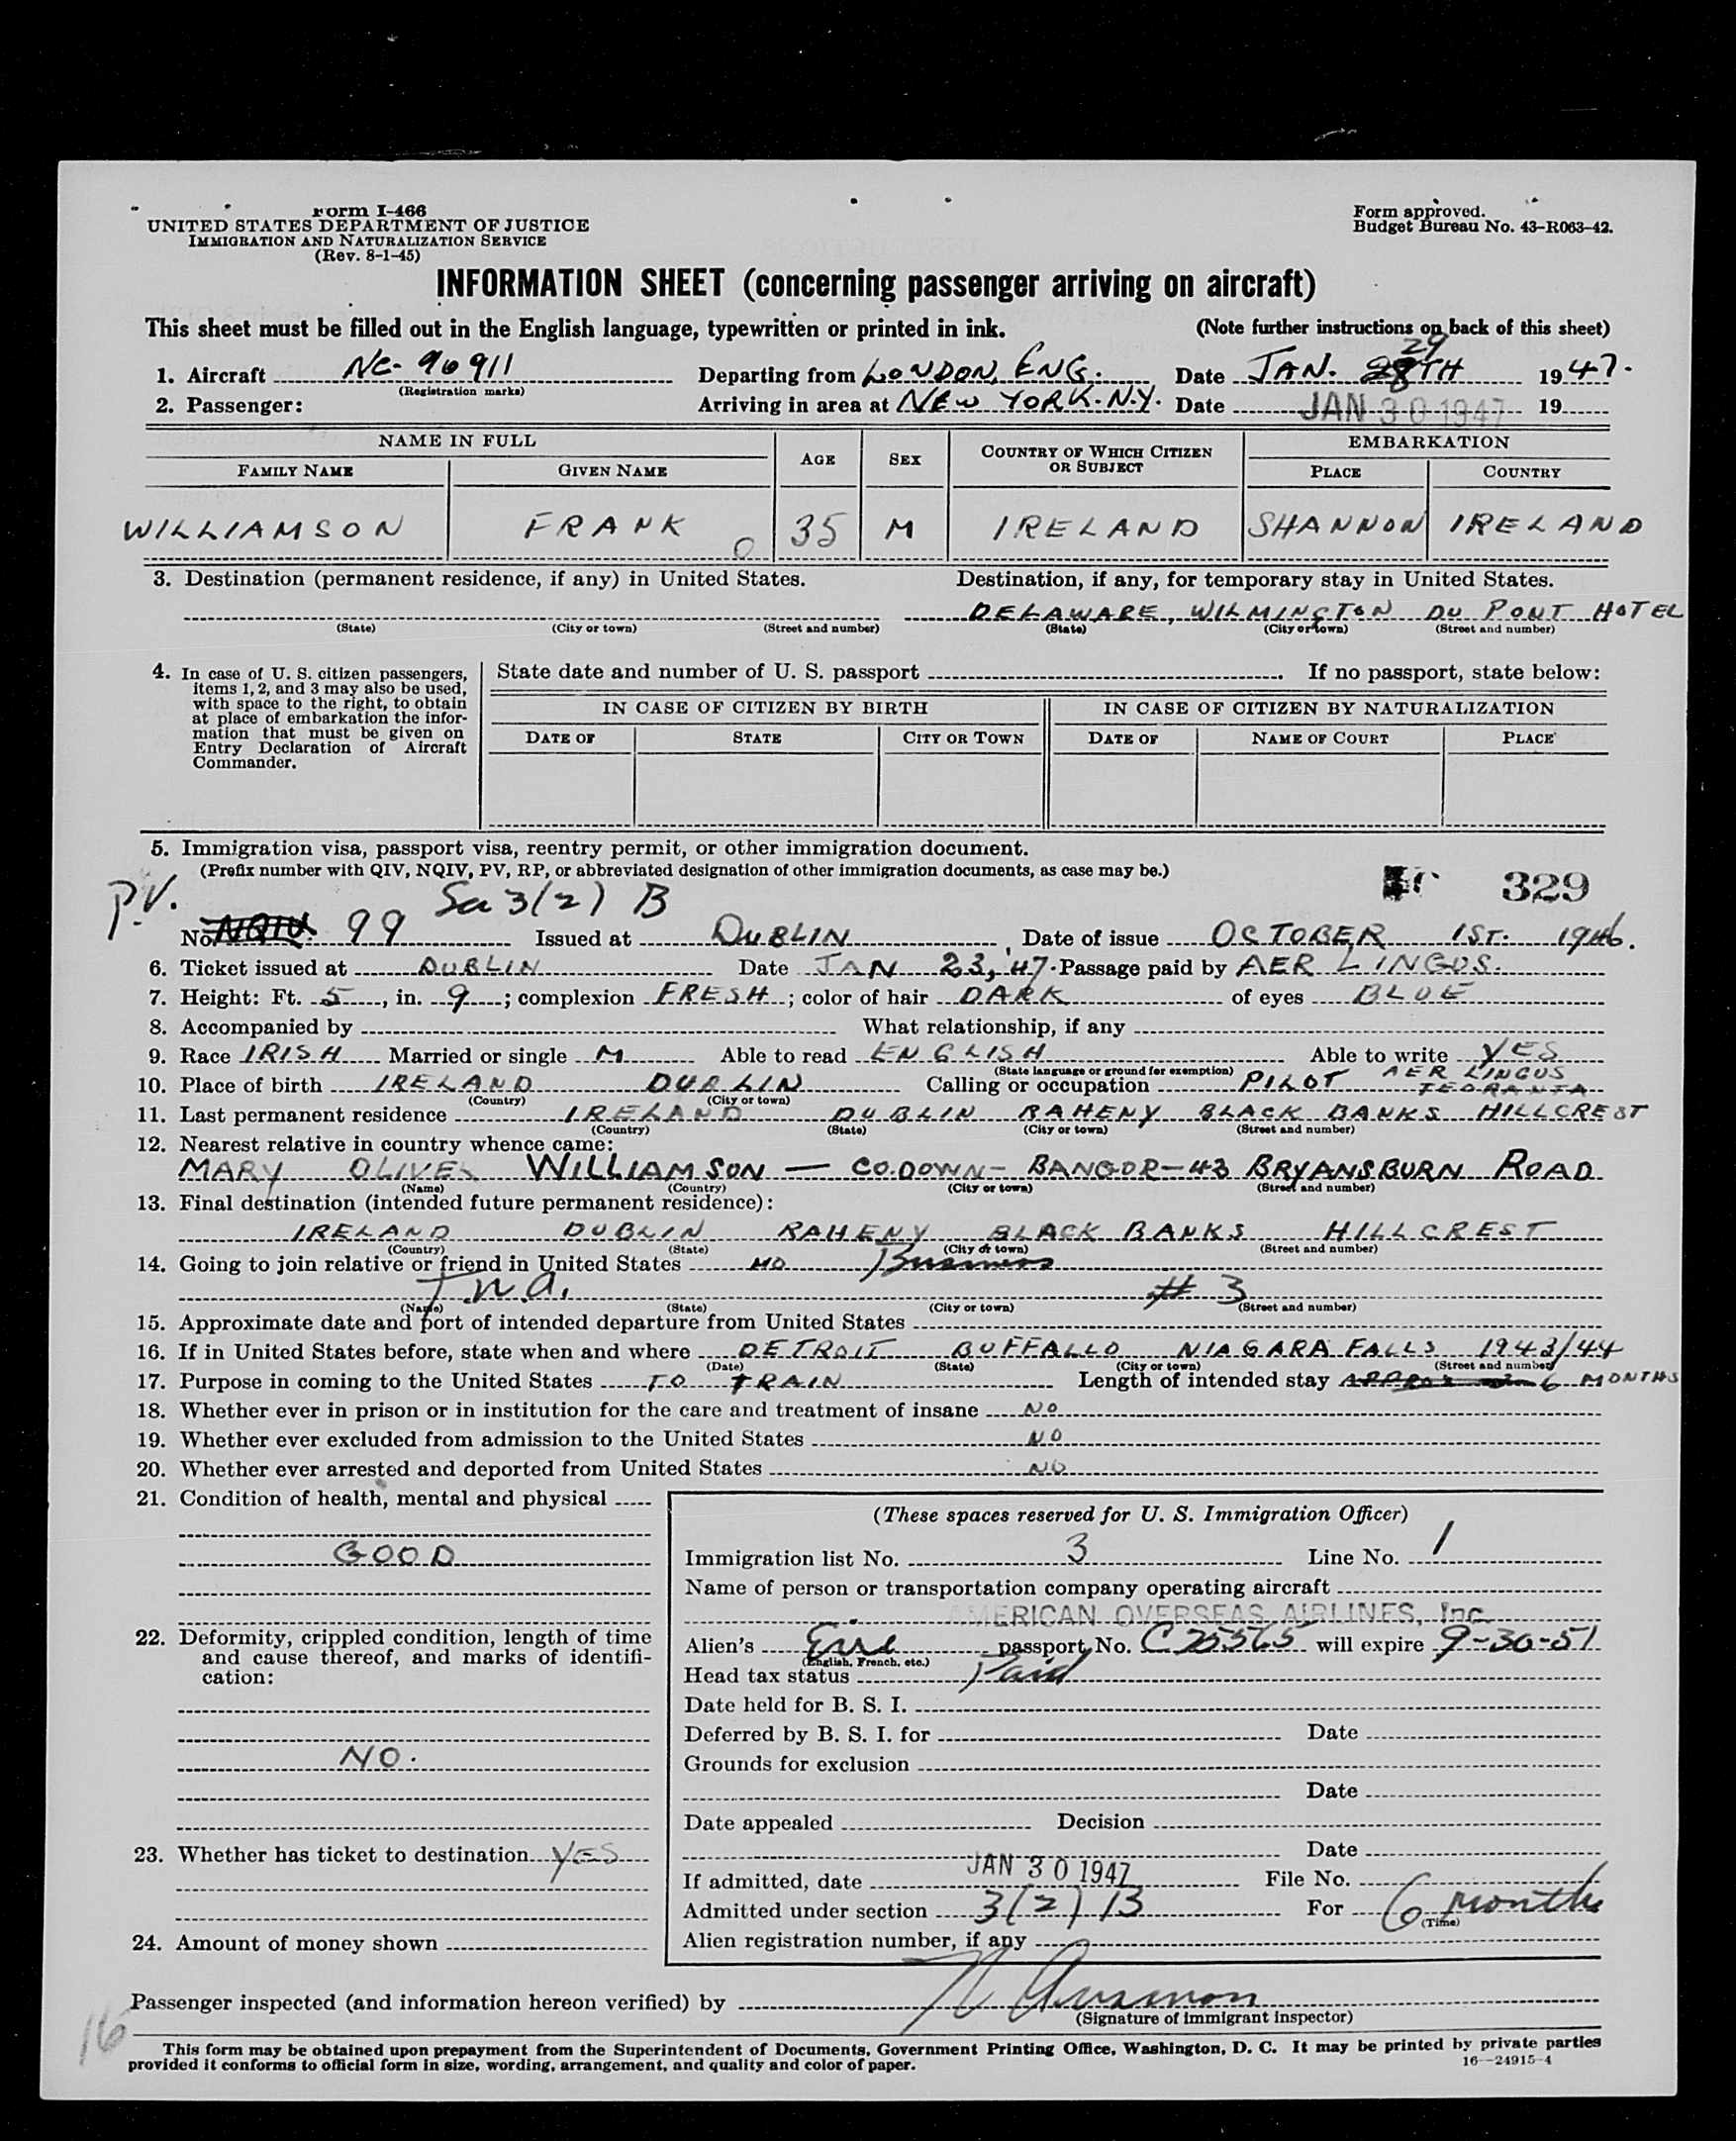 Form I-466
UNITED STATES DEPARTMENT OF JUSTICE
IMMIGRATION AND NATURALIZATION SERVICE
(Rev. 8-1-45)
Form approved.
Budget Bureau No. 43-R063-42.
INFORMATION SHEET (concerning passenger arriving on aircraft)
This sheet must be filled out in the English language, typewritten or printed in ink. (Note further instructions on back of this sheet)
1. Aircraft NC-90911 Departing from LONDON, ENG. Date JAN. 29TH 1947.
(Registration marks)
2. Passenger: Arriving in area at NEW YORK. N.Y. Date JAN 30 1947 19
NAME IN FULL AGE SEX COUNTRY OF WHICH CITIZEN OR SUBJECT EMBARKATION
FAMILY NAME GIVEN NAME PLACE COUNTRY
WILLIAMSON FRANK 0 35 M IRELAND SHANNON IRELAND
3. Destination (permanent residence, if any) in United States. Destination, if any, for temporary stay in United States.
DELAWARE, WILMINGTON DU PONT HOTEL
(State) (City or town) (Street and number) (State) (City or town) (Street and number)
4. In case of U. S. citizen passengers, items 1, 2, and 3 may also be used, with space to the right, to obtain at place of embarkation the information that must be given on Entry Declaration of Aircraft Commander.
State date and number of U. S. passport . If no passport, state below:
IN CASE OF CITIZEN BY BIRTH IN CASE OF CITIZEN BY NATURALIZATION
DATE OF STATE CITY OR TOWN DATE OF NAME OF COURT PLACE
5. Immigration visa, passport visa, reentry permit, or other immigration document.
(Prefix number with QIV, NQIV, PV, RP, or abbreviated designation of other immigration documents, as case may be.)
329
P.V. Sa 3(2) B
No. NQIV. 99 Issued at DUBLIN, Date of issue OCTOBER 1ST. 1946.
6. Ticket issued at DUBLIN Date JAN 23, '47. Passage paid by AER LINGUS.
7. Height: Ft. 5, in. 9; complexion FRESH; color of hair DARK of eyes BLUE
8. Accompanied by What relationship, if any
9. Race IRISH Married or single M Able to read ENGLISH Able to write YES
(State language or ground for exemption)
10. Place of birth IRELAND DUBLIN Calling or occupation PILOT AER LINGUS TEORANTA
(Country) (City or town)
11. Last permanent residence IRELAND DUBLIN RAHENY BLACK BANKS HILLCREST
(Country) (State) (City or town) (Street and number)
12. Nearest relative in country whence came:
MARY OLIVER WILLIAMSON — CO. DOWN - BANGOR - 43 BRYANSBURN ROAD
(Name) (Country) (City or town) (Street and number)
13. Final destination (intended future permanent residence):
IRELAND DUBLIN RAHENY BLACK BANKS HILLCREST
(Country) (State) (City or town) (Street and number)
14. Going to join relative or friend in United States NO Business
T.W.A. # 3
(Name) (State) (City or town) (Street and number)
15. Approximate date and port of intended departure from United States
16. If in United States before, state when and where DETROIT BUFFALLO NIAGARA FALLS 1943/44
(Date) (State) (City or town) (Street and number)
17. Purpose in coming to the United States TO TRAIN Length of intended stay 6 MONTHS
18. Whether ever in prison or in institution for the care and treatment of insane NO
19. Whether ever excluded from admission to the United States NO
20. Whether ever arrested and deported from United States NO
21. Condition of health, mental and physical
GOOD
22. Deformity, crippled condition, length of time and cause thereof, and marks of identification:
NO.
23. Whether has ticket to destination YES
24. Amount of money shown
(These spaces reserved for U. S. Immigration Officer)
Immigration list No. 3 Line No. 1
Name of person or transportation company operating aircraft
AMERICAN OVERSEAS AIRLINES, Inc.
Alien's Eire passport No. C25565 will expire 9-30-51
(English, French, etc.)
Head tax status Paid
Date held for B. S. I.
Deferred by B. S. I. for Date
Grounds for exclusion
Date
Date appealed Decision
Date
If admitted, date JAN 30 1947 File No.
Admitted under section 3(2)B For 6 months
(Time)
Alien registration number, if any
Passenger inspected (and information hereon verified) by
(Signature of immigrant inspector)
16
This form may be obtained upon prepayment from the Superintendent of Documents, Government Printing Office, Washington, D. C. It may be printed by private parties
provided it conforms to official form in size, wording, arrangement, and quality and color of paper.
16—24915-4